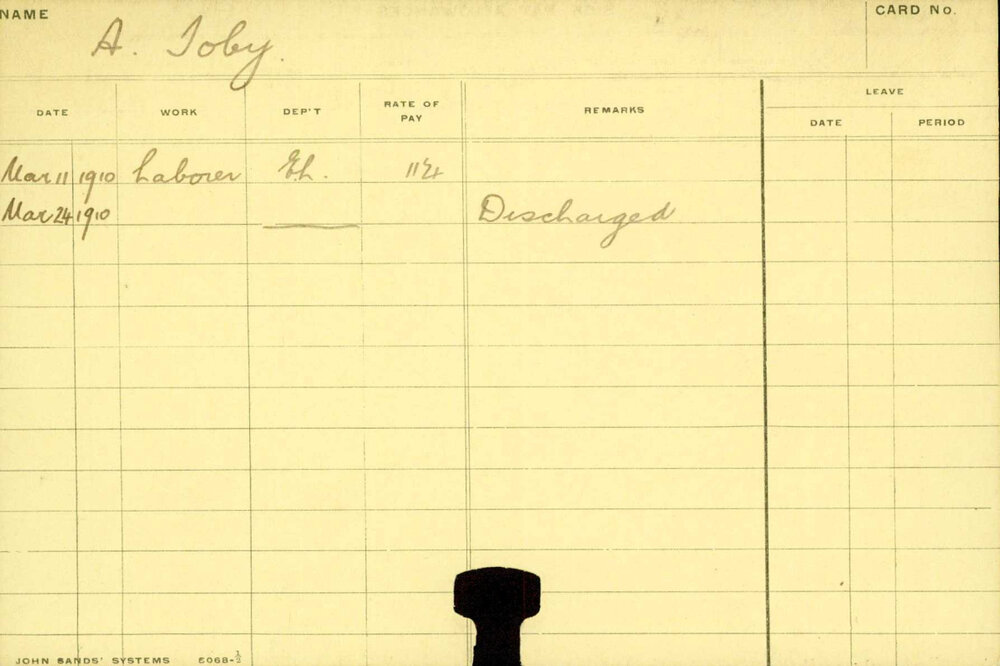 NAME
CARD No.
A. Toby.
DATE WORK DEP'T RATE OF PAY REMARKS LEAVE
DATE PERIOD
Mar 11 1910 Laborer Eh.
Mar 24 1910 Discharged
JOHN SANDS' SYSTEMS 5068-½